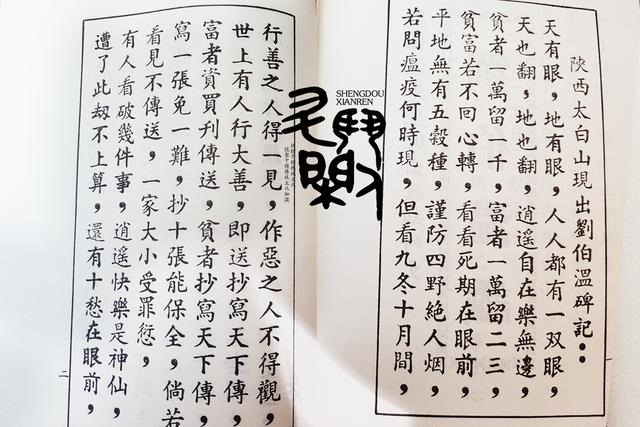 陝西太白山現出劉伯溫碑記：
天有眼，地有眼，人人都有一双眼，
天也翻，地也翻，逍遙自在樂無邊，
貧者一萬留一千，富者一萬留二三，
貧富若不回心轉，看看死期在眼前，
平地無有五穀種，謹防四野絕人烟，
若問瘟疫何時現，但看九冬十月間，
一
SHENGDOU
XIANREN
行善之人得一見，作惡之人不得觀，
世上有人行大善，即送抄寫天下傳，
富者資買刊傳送，貧者抄寫天下傳，
寫一張免一難，抄十張能保全，倘若
看見不傳送，一家大小受罪愆，
有人看破幾件事，逍遙快樂是神仙，
遭了此劫不上算，還有十愁在眼前，
二